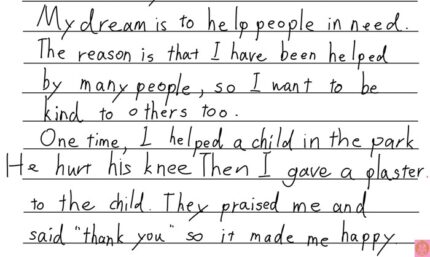 My dream is to help people in need.
The reason is that I have been helped
by many people, so I want to be
kind to others too.
One time, I helped a child in the park
He hurt his knee Then I gave a plaster.
to the child. They praised me and
said "thank you" so it made me happy.